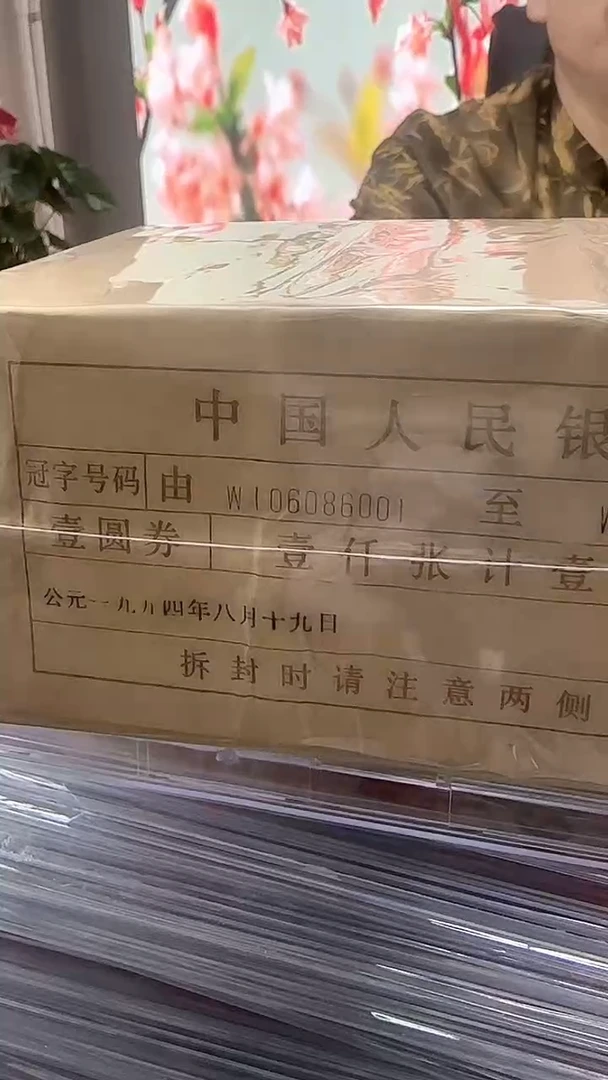 中国人民银
冠字号码 由 WI06086001 至 W
壹圆券 壹仟张计壹
公元一九九四年八月十九日
拆封时请注意两侧